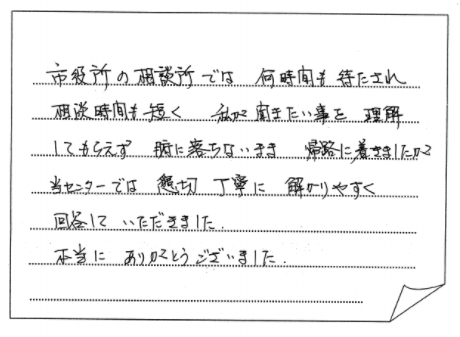 市役所の相談所では 何時間も待たされ
相談時間も短く 私が聞きたい事を 理解
してもらえず 腑に落ちないまま 帰路に着きましたが
当センターでは 懇切 丁寧に 解かりやすく
回答して いただきました.
本当に ありがとうございました.